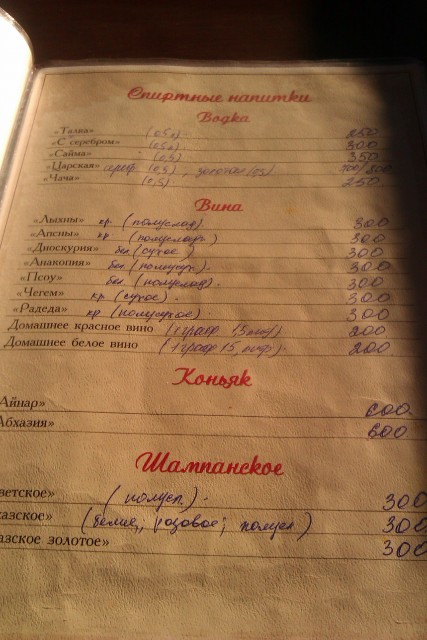 Спиртные напитки
Водка
«Талка» (0,5л) 250
«С серебром» (0,5л) 300
«Сайма» (0,5) 350
«Царская» сереб. (0,5), золотая (0,5)
«Чача» (0,5) 250
Вина
«Лыхны» кр. (полуслад) 300
«Апсны» кр. (полусладк) 300
«Диоскурия» бел (сухое) 300
«Анакопия» бел. (полусух). 300
«Псоу» бел. (полуслад) 300
«Чегем» кр (сухое). 300
«Радеда» кр (полусухое) 300
Домашнее красное вино (1 граф 1,5 литр) 200
Домашнее белое вино (1 граф 1,5 литр) 200
Коньяк
Айнар» 600.
Абхазия» 600
Шампанское
ветское» (полусл). 300
казское» (белые, розовое; полусл) 300
азское золотое» 300